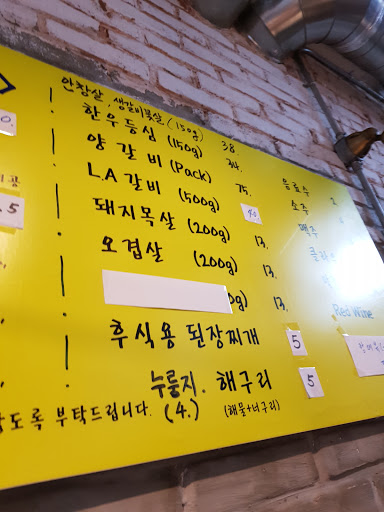 안창살, 생갈비북살 (150g) 38.
한우등심 (150g) 34.
양갈비 (Pack) 75.
L.A 갈비 (500g) 40
돼지목살 (200g) 13.
오겹살 (200g) 13.
0g) 13.
후식용 된장찌개 5
누룽지. 해구리 5
도록 부탁드립니다. (4.) (해물+너구리)
음료수 2
소주
맥주
Red Wine